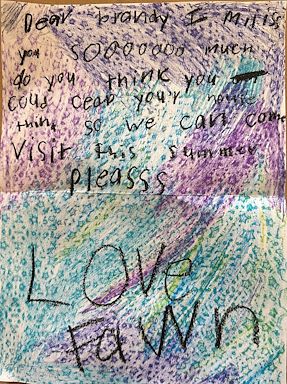 Dear brandy I miiss
you SOOOOOOO much
do you think you
coud cean your house
thing so we can come
visit this summer
pleasss
LOve
Fawn